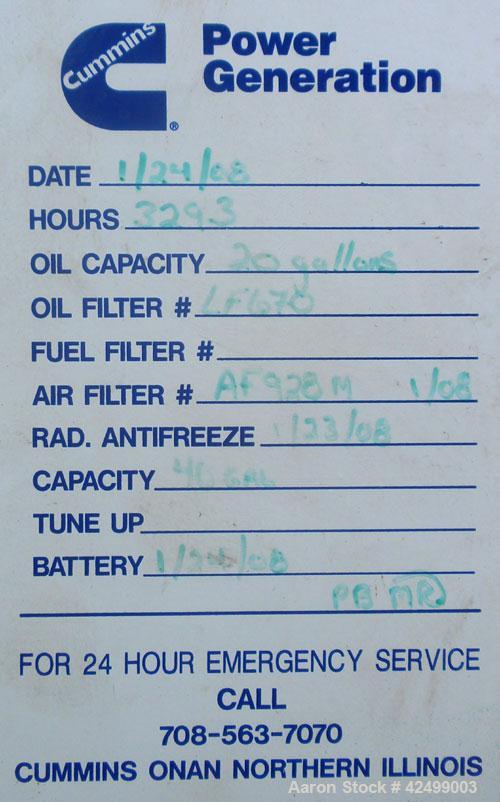 Cummins
Power
Generation
®
DATE 1/24/08
HOURS 3293
OIL CAPACITY 20 gallons
OIL FILTER # LF670
FUEL FILTER #
AIR FILTER # AF928M 1/08
RAD. ANTIFREEZE 1/23/08
CAPACITY 40 GAL
TUNE UP
BATTERY 1/24/08
PB MR
FOR 24 HOUR EMERGENCY SERVICE
CALL
708-563-7070
CUMMINS ONAN NORTHERN ILLINOIS
Aaron Stock # 42499003